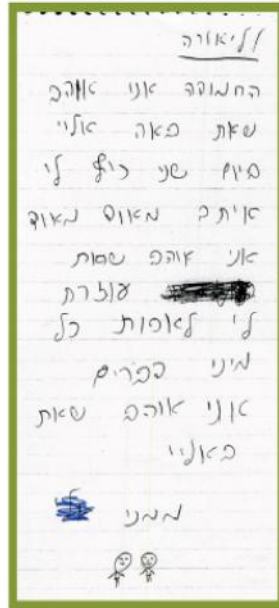 לליאורה
החמודה אני אוהב
שאת באה אליי
ביום שני כיף לי
איתך מאוד מאוד
אני אוהב שאת
עוזרת
לי לאפות כל
מיני דברים
אני אוהב שאת
באליי
ממני